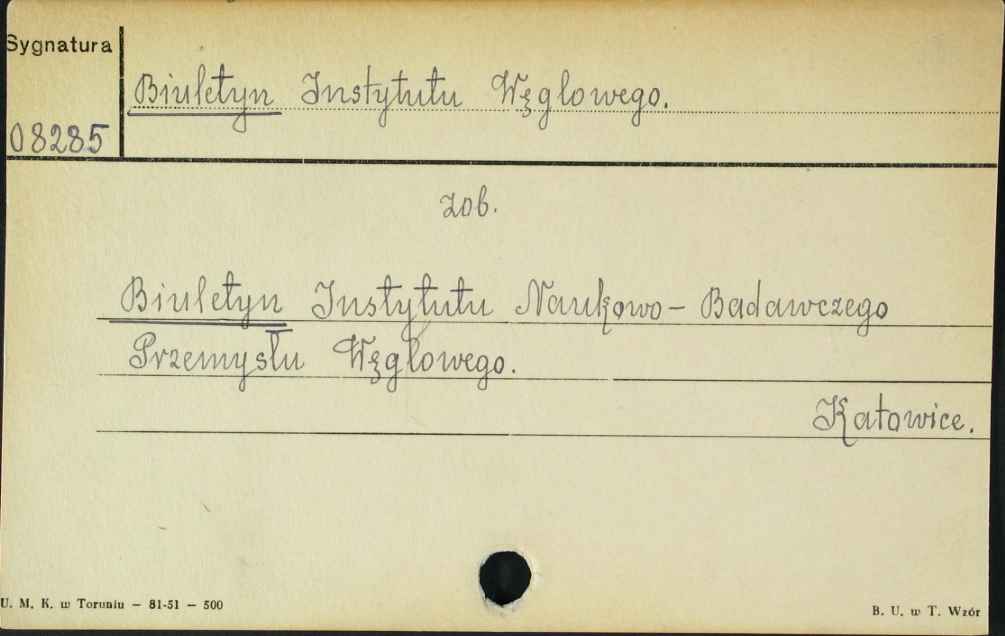 Sygnatura
Biuletyn Instytutu Węglowego.
08285
zob.
Biuletyn Instytutu Naukowo - Badawczego
Przemysłu Węglowego.
Katowice.
U. M. K. w Toruniu — 81-51 — 500
B. U. w T. Wzór